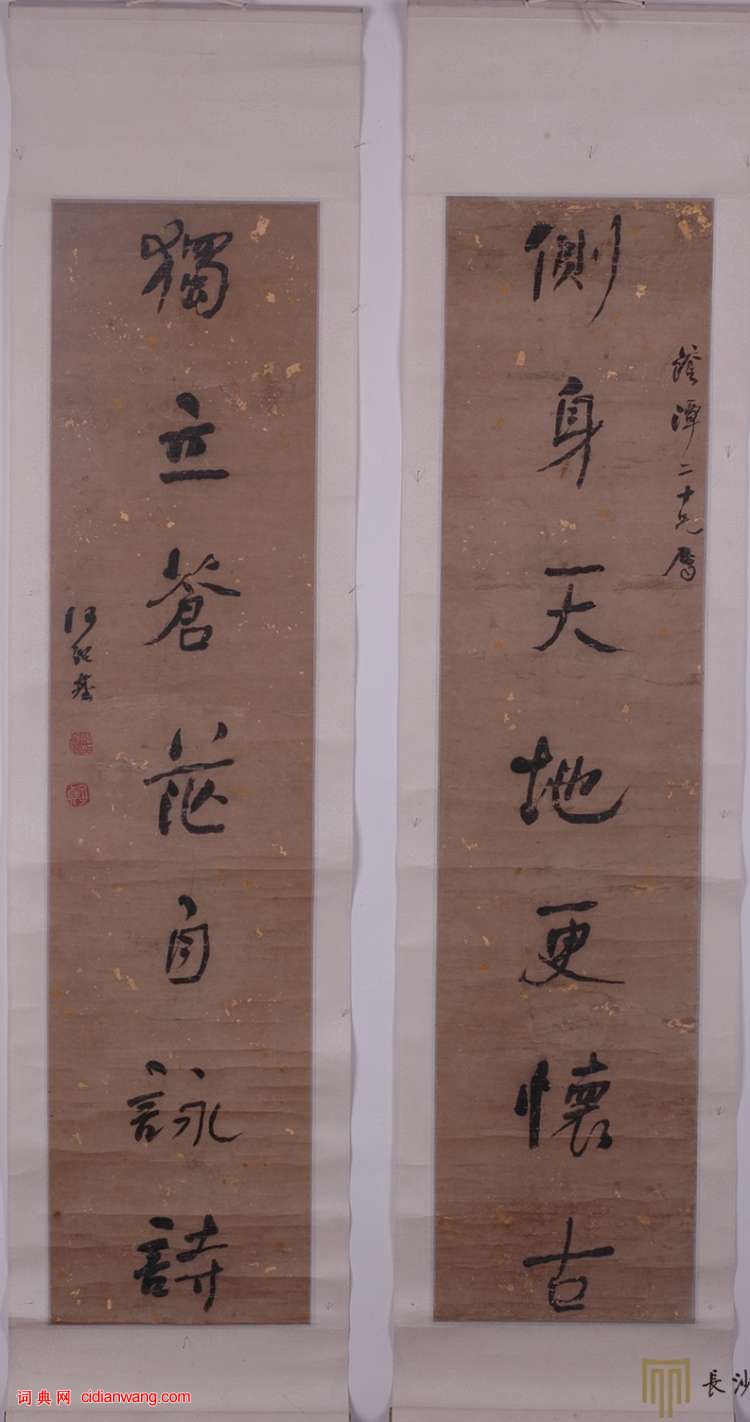 側身天地更懷古
蔭潭二十兄屬
獨立蒼茫自詠詩
何紹基
词典网 cidianwang.com
長沙